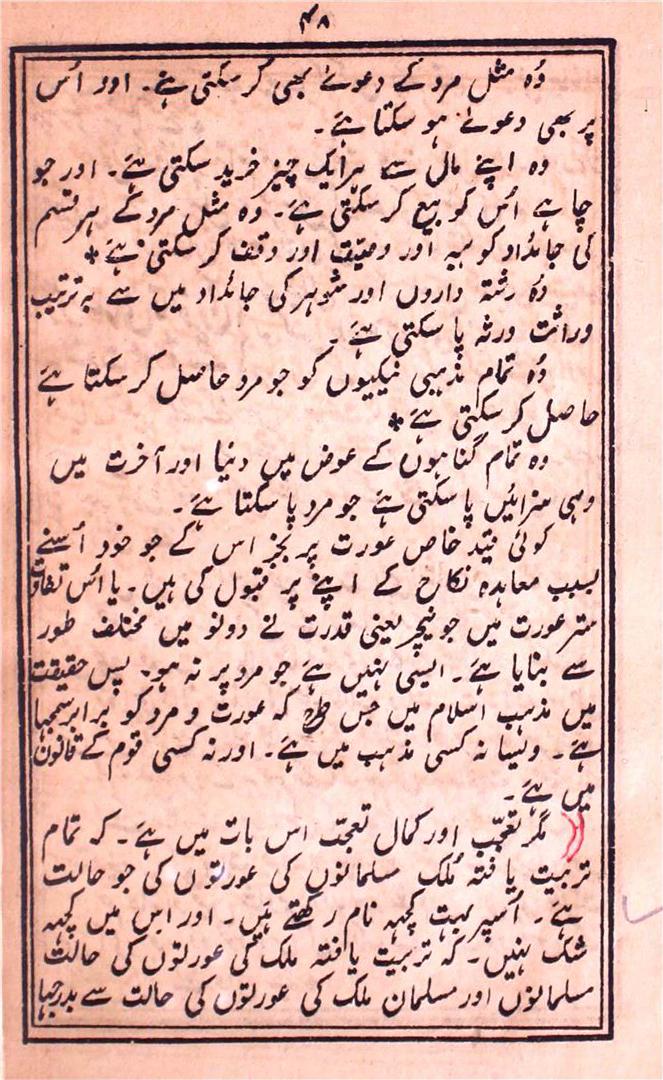 ۴۸
وُہ مثل مرد کے دعوےٰ بھی کر سکتی ہے۔ اور اُس
پر بھی دعوےٰ ہو سکتا ہے۔
وہ اپنے مال سے ہر ایک چیز خرید سکتی ہے۔ اور جو
چاہے اُس کو بیع کر سکتی ہے۔ وہ مثل مرد کے ہر قسم
کی جائداد کو ہبہ اور وصیّت اور وقف کر سکتی ہے*
وُہ رشتہ داروں اور شوہر کی جائداد میں سے بہ ترتیب
وراثت ورثہ پا سکتی ہے۔
وُہ تمام مذہبی نیکیوں کو جو مرد حاصل کر سکتا ہے
حاصل کر سکتی ہے*
وہ تمام گناہوں کے عوض میں دنیا اور آخرت میں
وہی سزائیں پا سکتی ہے جو مرد پا سکتا ہے۔
کوئی قید خاص عورت پر بجز اس کے جو خود اُسنے
بسبب معاہدہ نکاح کے اپنے پر قبول کی ہیں۔ یا اُس تفاوت
ستر عورت میں جو نیچر یعنی قدرت نے دونو میں مختلف طور
سے بنایا ہے۔ ایسی نہیں ہے جو مرد پر نہ ہو۔ پس حقیقت
میں مذہب اسلام میں جس طرح کہ عورت و مرد کو برابر سمجہا
ہے۔ ویسا نہ کسی مذہب میں ہے۔ اور نہ کسی قوم کے قانون
میں ہے۔
مگر تعجّب اور کمال تعجب اس بات میں ہے۔ کہ تمام
تربیت یافتہ مُلک مسلمانوں کی عورتوں کی جو حالت
ہے۔ اُسپر بہت کچہہ نام رکھتے ہیں۔ اور اس میں کچہہ
شک نہیں۔ کہ تربیت یافتہ ملک کی عورتوں کی حالت
مسلمانوں اور مسلمان ملک کی عورتوں کی حالت سے بدرجہا